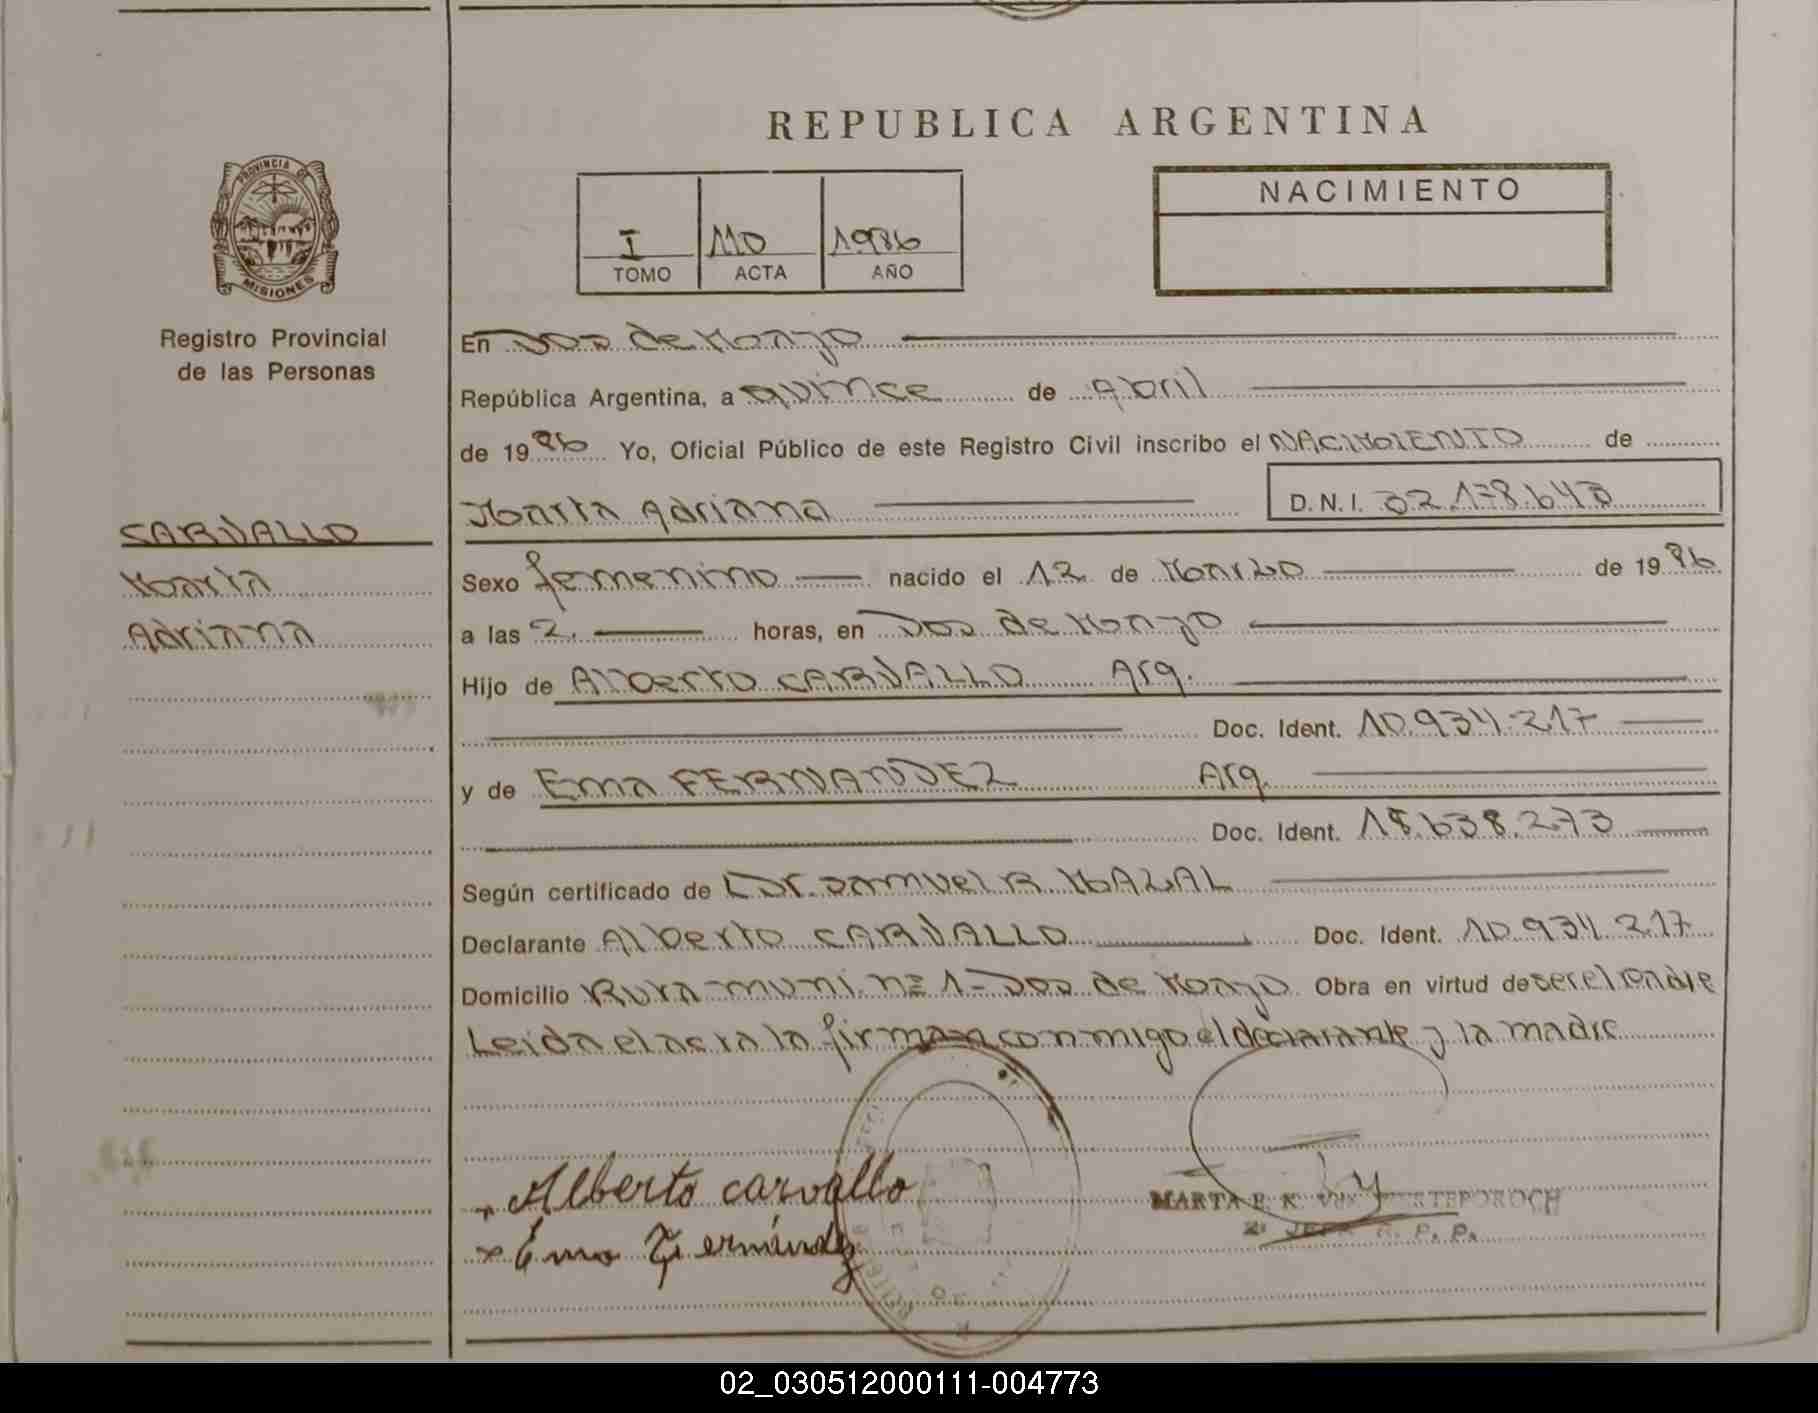 REPUBLICA ARGENTINA
PROVINCIA DE
MISIONES
Registro Provincial
de las Personas
I 110 1986
TOMO ACTA AÑO
NACIMIENTO
CARVALLO
Marta
Adriana
En Dos de Mayo
República Argentina, a quince de Abril
de 1986 Yo, Oficial Público de este Registro Civil inscribo el NACIMIENTO de
Marta Adriana D.N.I. 32.178.643
Sexo femenino nacido el 12 de Marzo de 1986
a las 2. horas, en Dos de Mayo
Hijo de Alberto CARVALLO Arg.
Doc. Ident. 10.934.217
y de Ema FERNANDEZ Arg.
Doc. Ident. 18.638.273
Según certificado de Dr. Samuel R. MAZAL
Declarante Alberto CARVALLO Doc. Ident. 10.934.217
Domicilio Ruta muni. nº 1-Dos de Mayo Obra en virtud de ser el Padre
Leida el acta la firman conmigo el declarante y la madre
Alberto carvallo
Ema Fernández
MARTA E. K.
R. P. P.
02_030512000111-004773